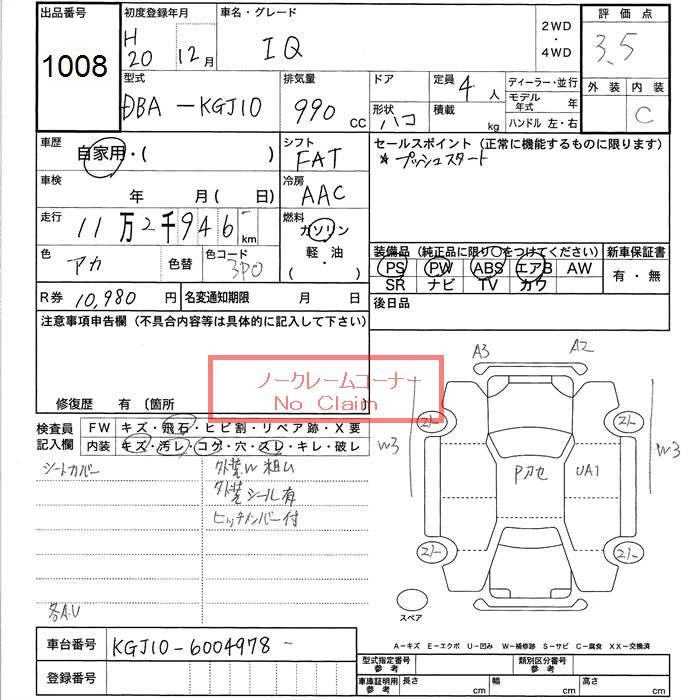 出品番号
1008
初度登録年月
H 20 12月
車名・グレード
IQ
2WD
・
4WD
評価点
3.5
外装 内装
C
型式
DBA-KGJ10
排気量
990 cc
ドア
形状 ハコ
定員 4 人
積載 kg
ディーラー・並行
モデル年式 年
ハンドル 左・右
車歴
自家用・( )
シフト
FAT
セールスポイント (正常に機能するものに限ります)
★プッシュスタート
車検
年 月( 日)
冷房
AAC
走行
11万2千946 km
燃料
ガソリン
・
軽・油
( )
色
アカ
色替
色コード
3P0
装備品 (純正品に限り○をつけてください)
PS PW ABS エアB AW
SR ナビ TV カワ
新車保証書
有・無
R券 10,980 円
名変通知期限 月 日
後日品
注意事項申告欄 (不具合内容等は具体的に記入して下さい)
ノークレームコーナー
No Claim
修復歴 有 (箇所
検査員
記入欄
FW キズ・飛石・ヒビ割・リペア跡・X要
内装 キズ・汚レ・コゲ・穴・スレ・キレ・破レ
シートカバー
外装W粗ム
外装シール有
ヒッチメンバー付
各A.U
A3 A2
W3
W3
Pカセ UA1
スペア
A−キズ E−エクボ U−凹み W−補修跡 S−サビ C−腐食 XX−交換済
車台番号
KGJ10-6004978
登録番号
型式指定番号
参考
類別区分番号
参考
車庫証明用
参考
長さ cm
幅 cm
高さ cm